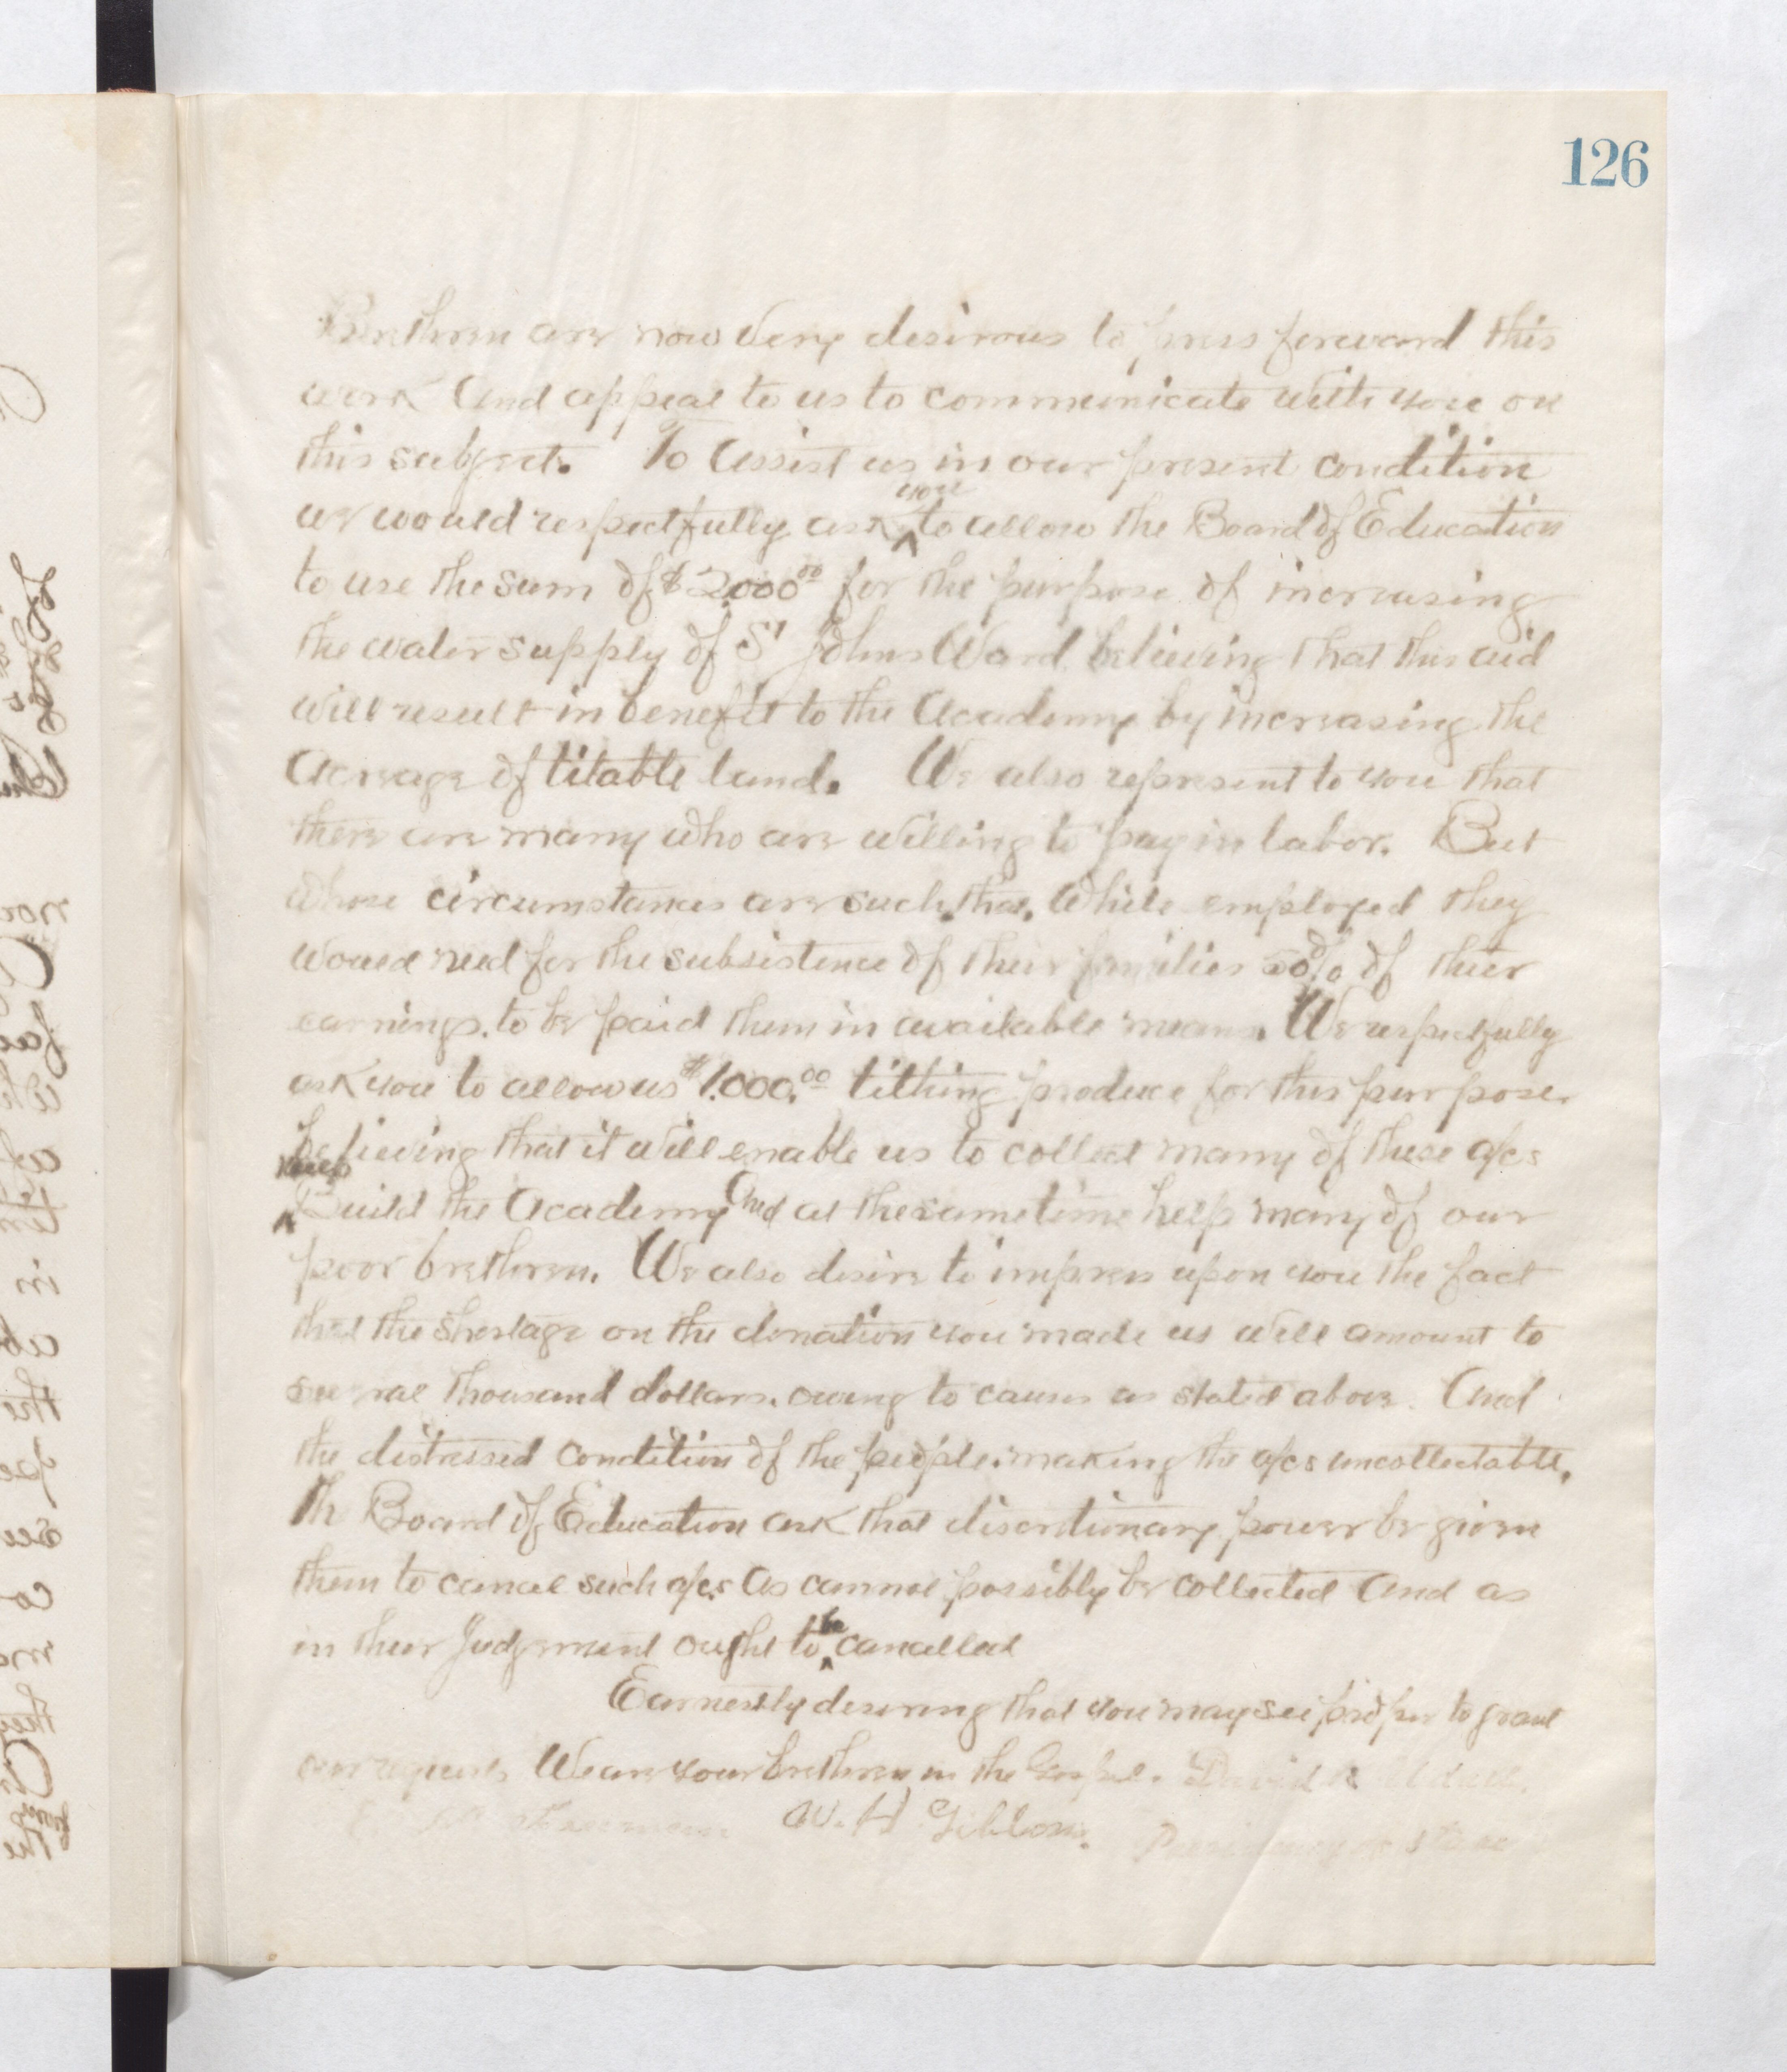 126
Brethren are now very desirous to press forward this
work And appeal to us to communicate with you on
this subject. To Assist us in our present condition
we would respectfully ask ^you to allow the Board of Education
to use the sum of $2.000 00 for the purpose of increasing
the water supply of St Johns Ward, believing that this aid
will result in benefit to the Academy by increasing the
Acreage of titable land. We also represent to you that
there are many who are willing to pay in labor. But
whose circumstances are such, that, while employed they
would need for the subsistence of their families 50% of their
earnings. to be paid them in available means. We respectfully
ask you to allow us $1.000.00 tithing produce for this purpose.
believing that it will enable us to collect many of these a/cs
^ Build the Academy And at the same time help many of our
poor brethren. We also desire to impress upon you the fact
that the shortage on the donation you made us will amount to
several thousand dollars. owing to causes as stated above. And
the distressed condition of the people. making the a/cs uncollectable.
The Board of Education ask that discretionary power be given
them to cancel such a/cs As cannot possibly be collected And as
in their Judgement ought to ^be cancelled
Earnestly desiring that you may see proper to grant
our requests We are your brethren in the Gospel. David K Udall.
W. H Gibbons. Presidency of Stake